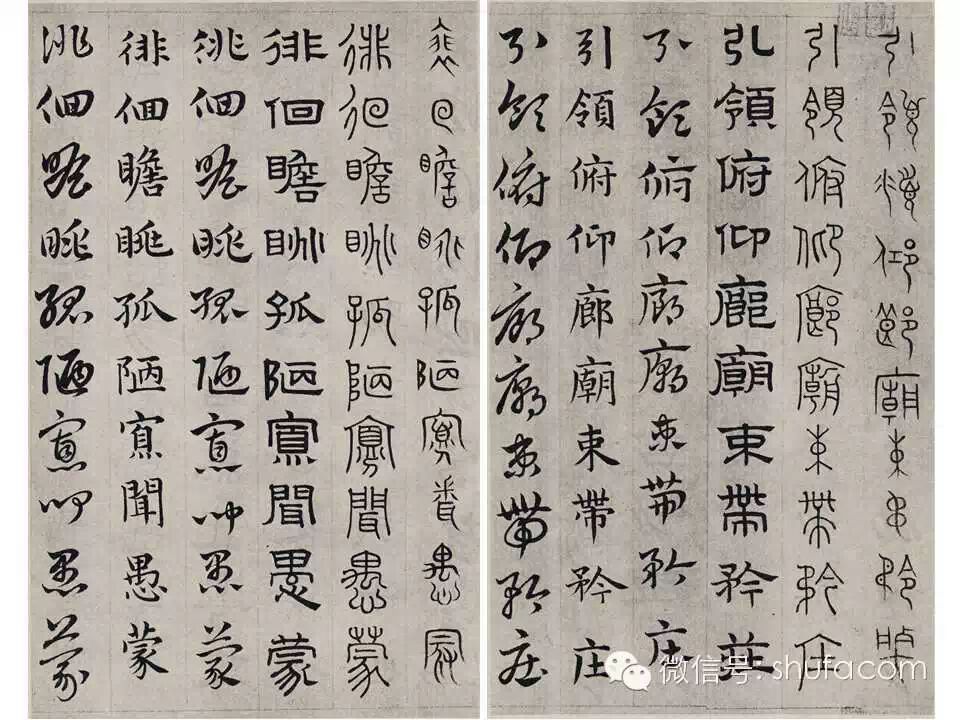 引領俯仰廊廟束帶矜莊
引領俯仰廊廟束帶矜莊
引領俯仰廊廟束帶矜莊
引領俯仰廊廟束帶矜庄
引領俯仰廊廟束帶矜庄
引領俯仰廊廟束帶矜庄
徘徊瞻眺孤陋寡聞愚蒙
徘徊瞻眺孤陋寡聞愚蒙
徘徊瞻眺孤陋寡聞愚蒙
徘徊瞻眺孤陋寡聞愚蒙
徘徊瞻眺孤陋寡聞愚蒙
徘徊瞻眺孤陋寡聞愚蒙
微信号: shufacom